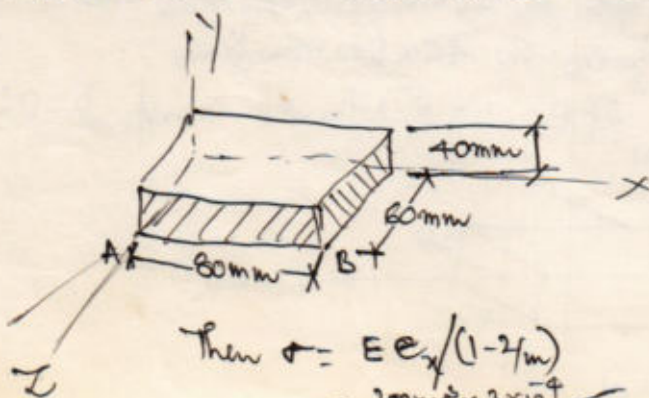 Y
40mm
X
60mm
A
80mm
B
Z
Then σ = E e_x/(1-2/m)